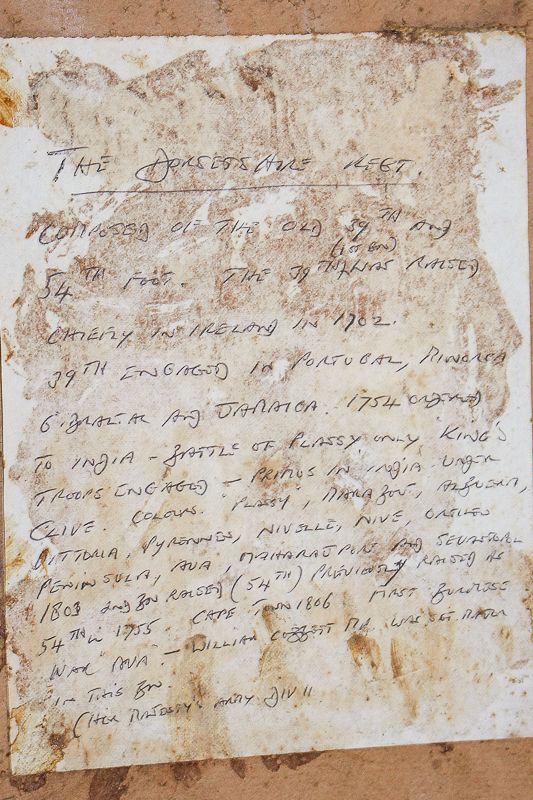 THE DORSETSHIRE REGT.
COMPOSED OF THE OLD 39TH AND
(1ST BN)
54TH FOOT. THE 39TH WAS RAISED
CHIEFLY IN IRELAND IN 1702.
39TH ENGAGED IN PORTUGAL, MINORCA
GIBRALTAR AND JAMAICA. 1754 ORDERED
TO INDIA - BATTLE OF PLASSY ONLY KING'S
TROOPS ENGAGED - PRIMUS IN INDIA UNDER
CLIVE. COLOURS. "PLASSY", MARABOU, ALBUERA,
VITTORIA, PYRENNES, NIVELLE, NIVE, ORTHES
PENINSULA, AVA, MAHARAJPORE AND SEVASTOPOL
1803 2ND BN RAISED (54TH) PREVIOUSLY RAISED AS
54TH IN 1755. CAPE TOWN 1806 FIRST BURMESE
WAR "AVA" - WILLIAM COBBETT M.P. WAS SGT. MAJOR
IN THIS BN.
(HER MAJESTY'S ARMY DIV II